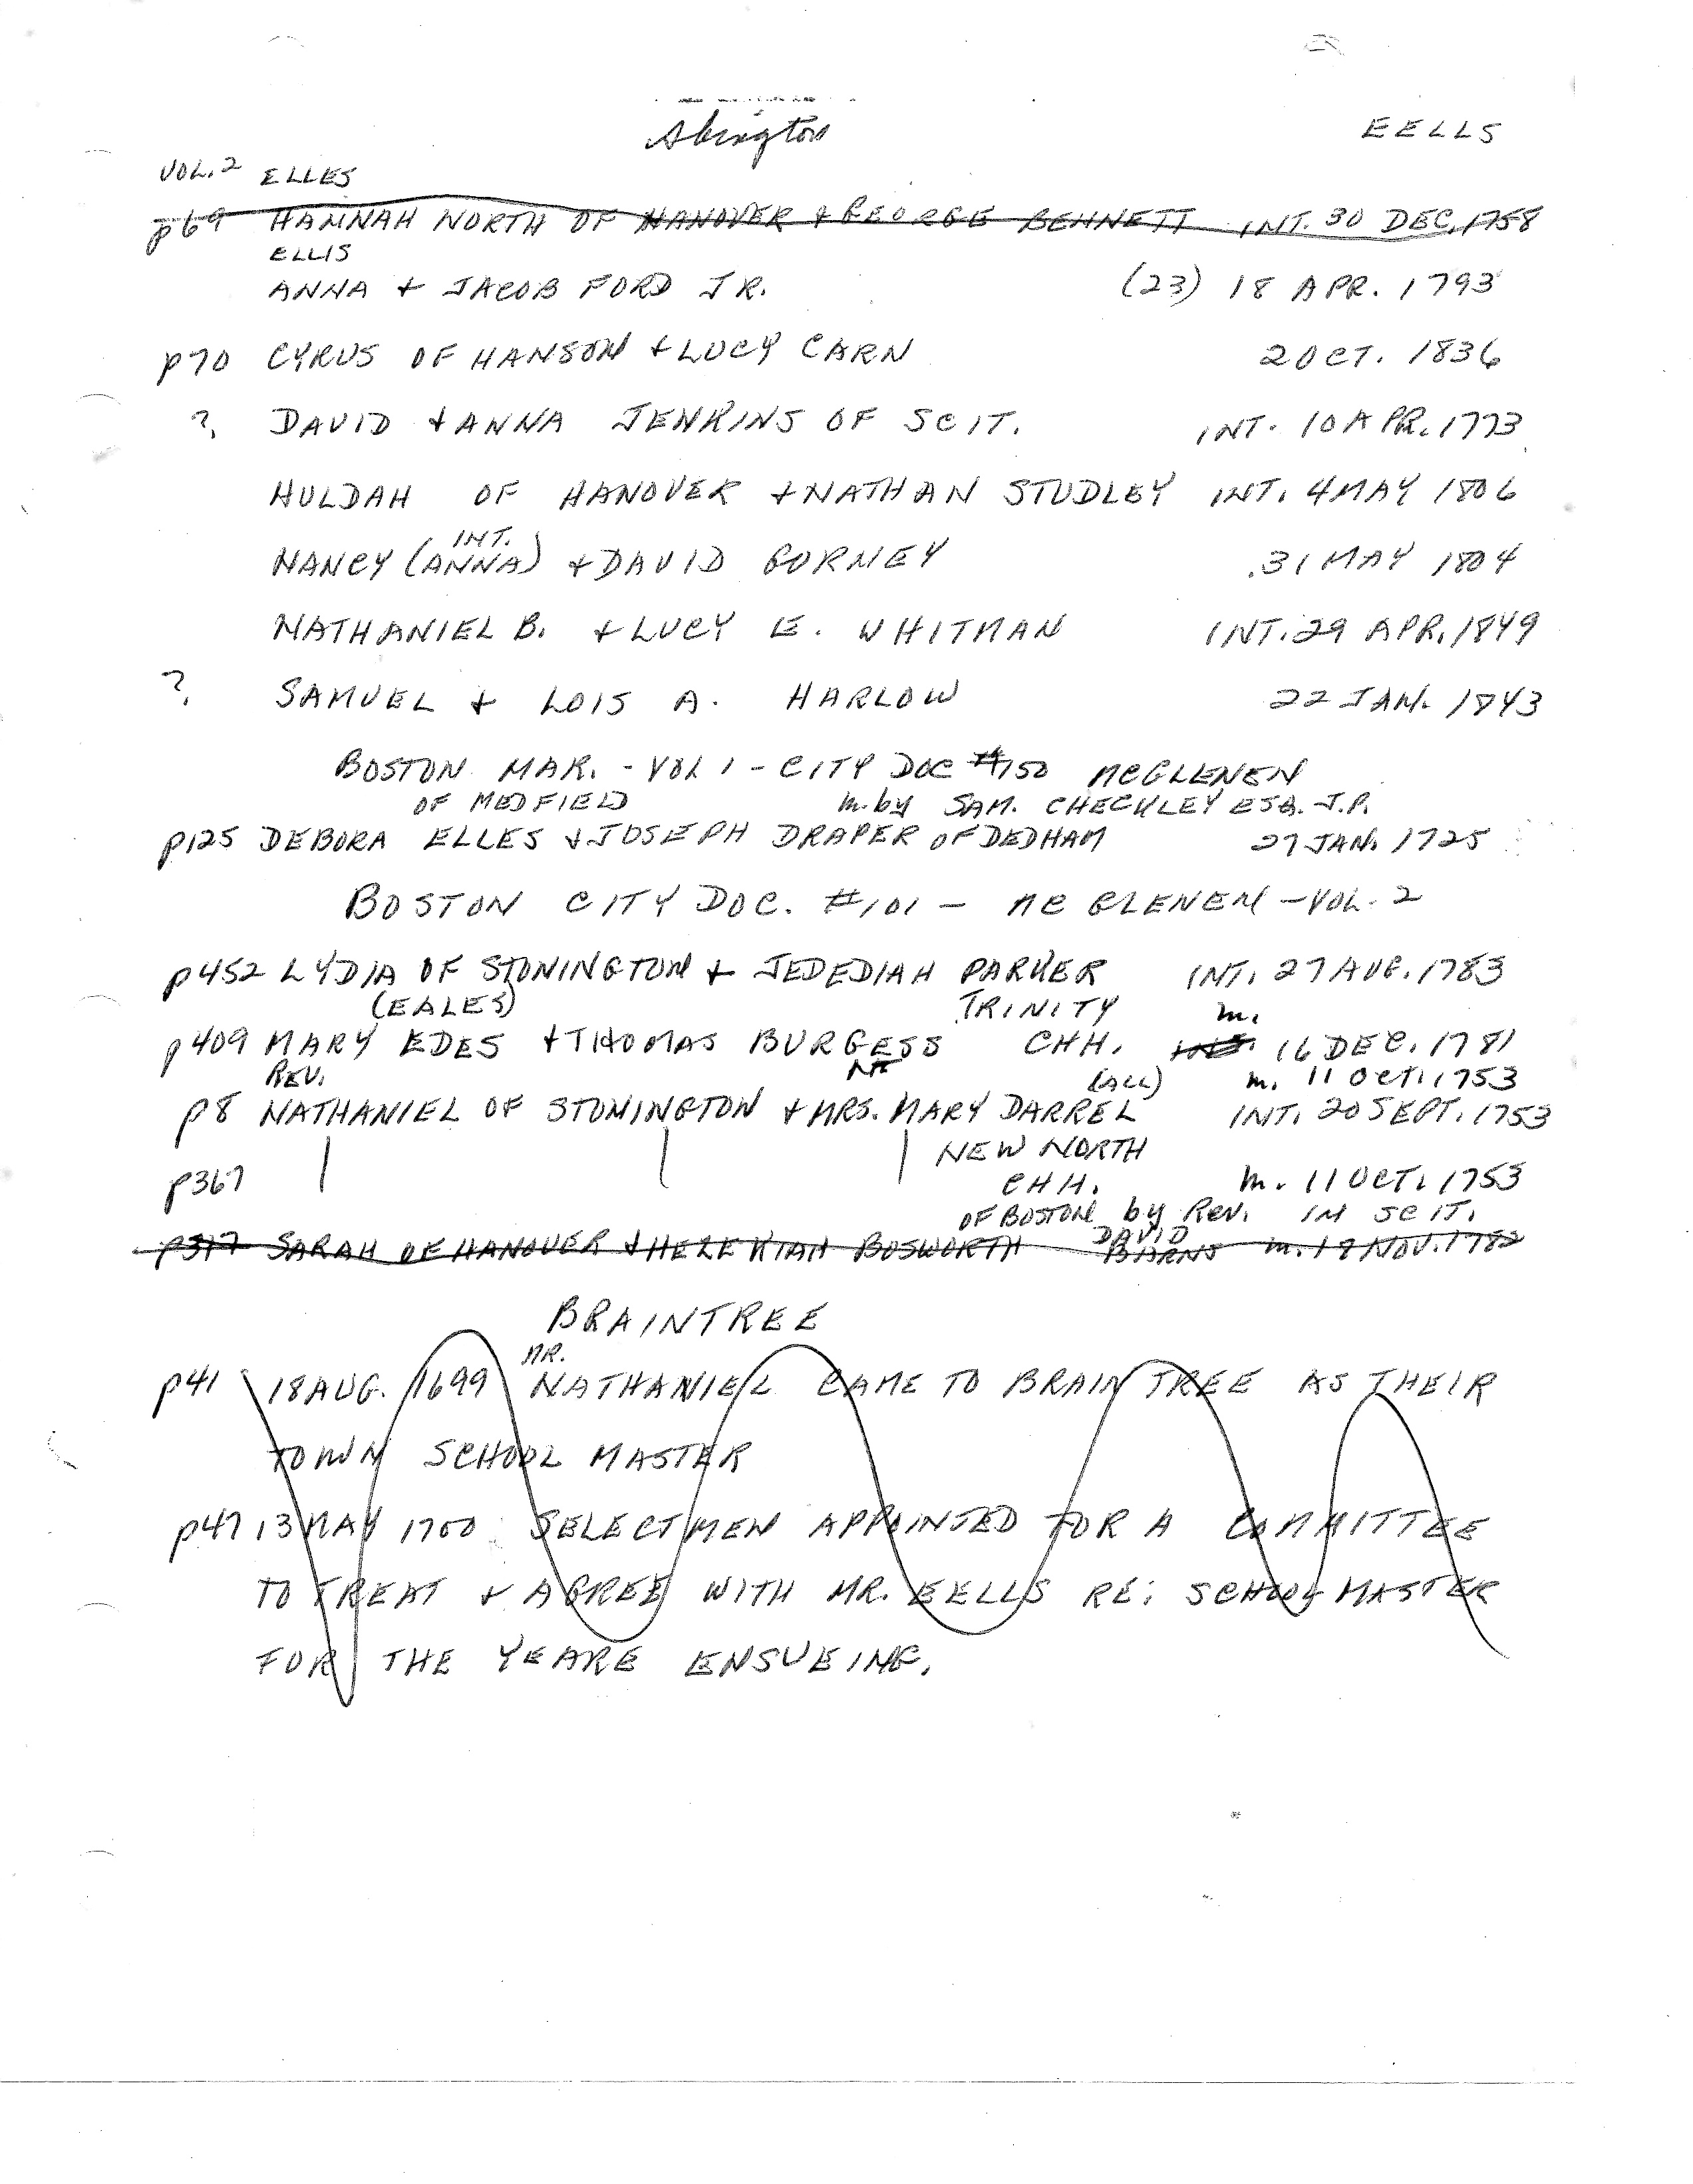 Abington
EELLS
VOL. 2 ELLES
p69 HANNAH NORTH OF HANOVER + GEORGE BENNETT INT. 30 DEC. 1758
ELLIS
ANNA + JACOB FORD JR. (23) 18 APR. 1793
p70 CYRUS OF HANSON + LUCY CARN 2 OCT. 1836
? DAVID + ANNA JENKINS OF SCIT. INT. 10 APR. 1773
HULDAH OF HANOVER + NATHAN STUDLEY INT. 4 MAY 1806
INT.
NANCY (ANNA) + DAVID GURNEY 31 MAY 1804
NATHANIEL B. + LUCY E. WHITMAN INT. 29 APR. 1849
? SAMUEL + LOIS A. HARLOW 22 JAN. 1843
BOSTON MAR. - VOL 1 - CITY DOC #150 MCGLENEN
OF MEDFIELD m. by SAM. CHECKLEY ESQ. J.P.
p125 DEBORA ELLES + JOSEPH DRAPER OF DEDHAM 27 JAN. 1725
BOSTON CITY DOC. #101 - MCGLENEN - VOL. 2
p452 LYDIA OF STONINGTON + JEDEDIAH PARKER INT. 27 AUG. 1783
(EALES) TRINITY m.
p409 MARY EDES + THOMAS BURGESS CHH. INT. 16 DEC. 1781
REV. (ALL) m. 11 OCT. 1753
p8 NATHANIEL OF STONINGTON + MRS. MARY DARREL INT. 20 SEPT. 1753
NEW NORTH
p367 CHH. m. 11 OCT. 1753
OF BOSTON by Rev. IN SCIT.
DAVID
p317 SARAH OF HANOVER + HEZEKIAH BOSWORTH BARNS m. 19 NOV. 1782
BRAINTREE
MR.
p41 18 AUG. 1699 NATHANIEL CAME TO BRAINTREE AS THEIR
TOWN SCHOOL MASTER
p47 13 MAY 1700 SELECTMEN APPOINTED FOR A COMMITTEE
TO TREAT + AGREE WITH MR. EELLS RE: SCHOOL MASTER
FOR THE YEARE ENSUEING.